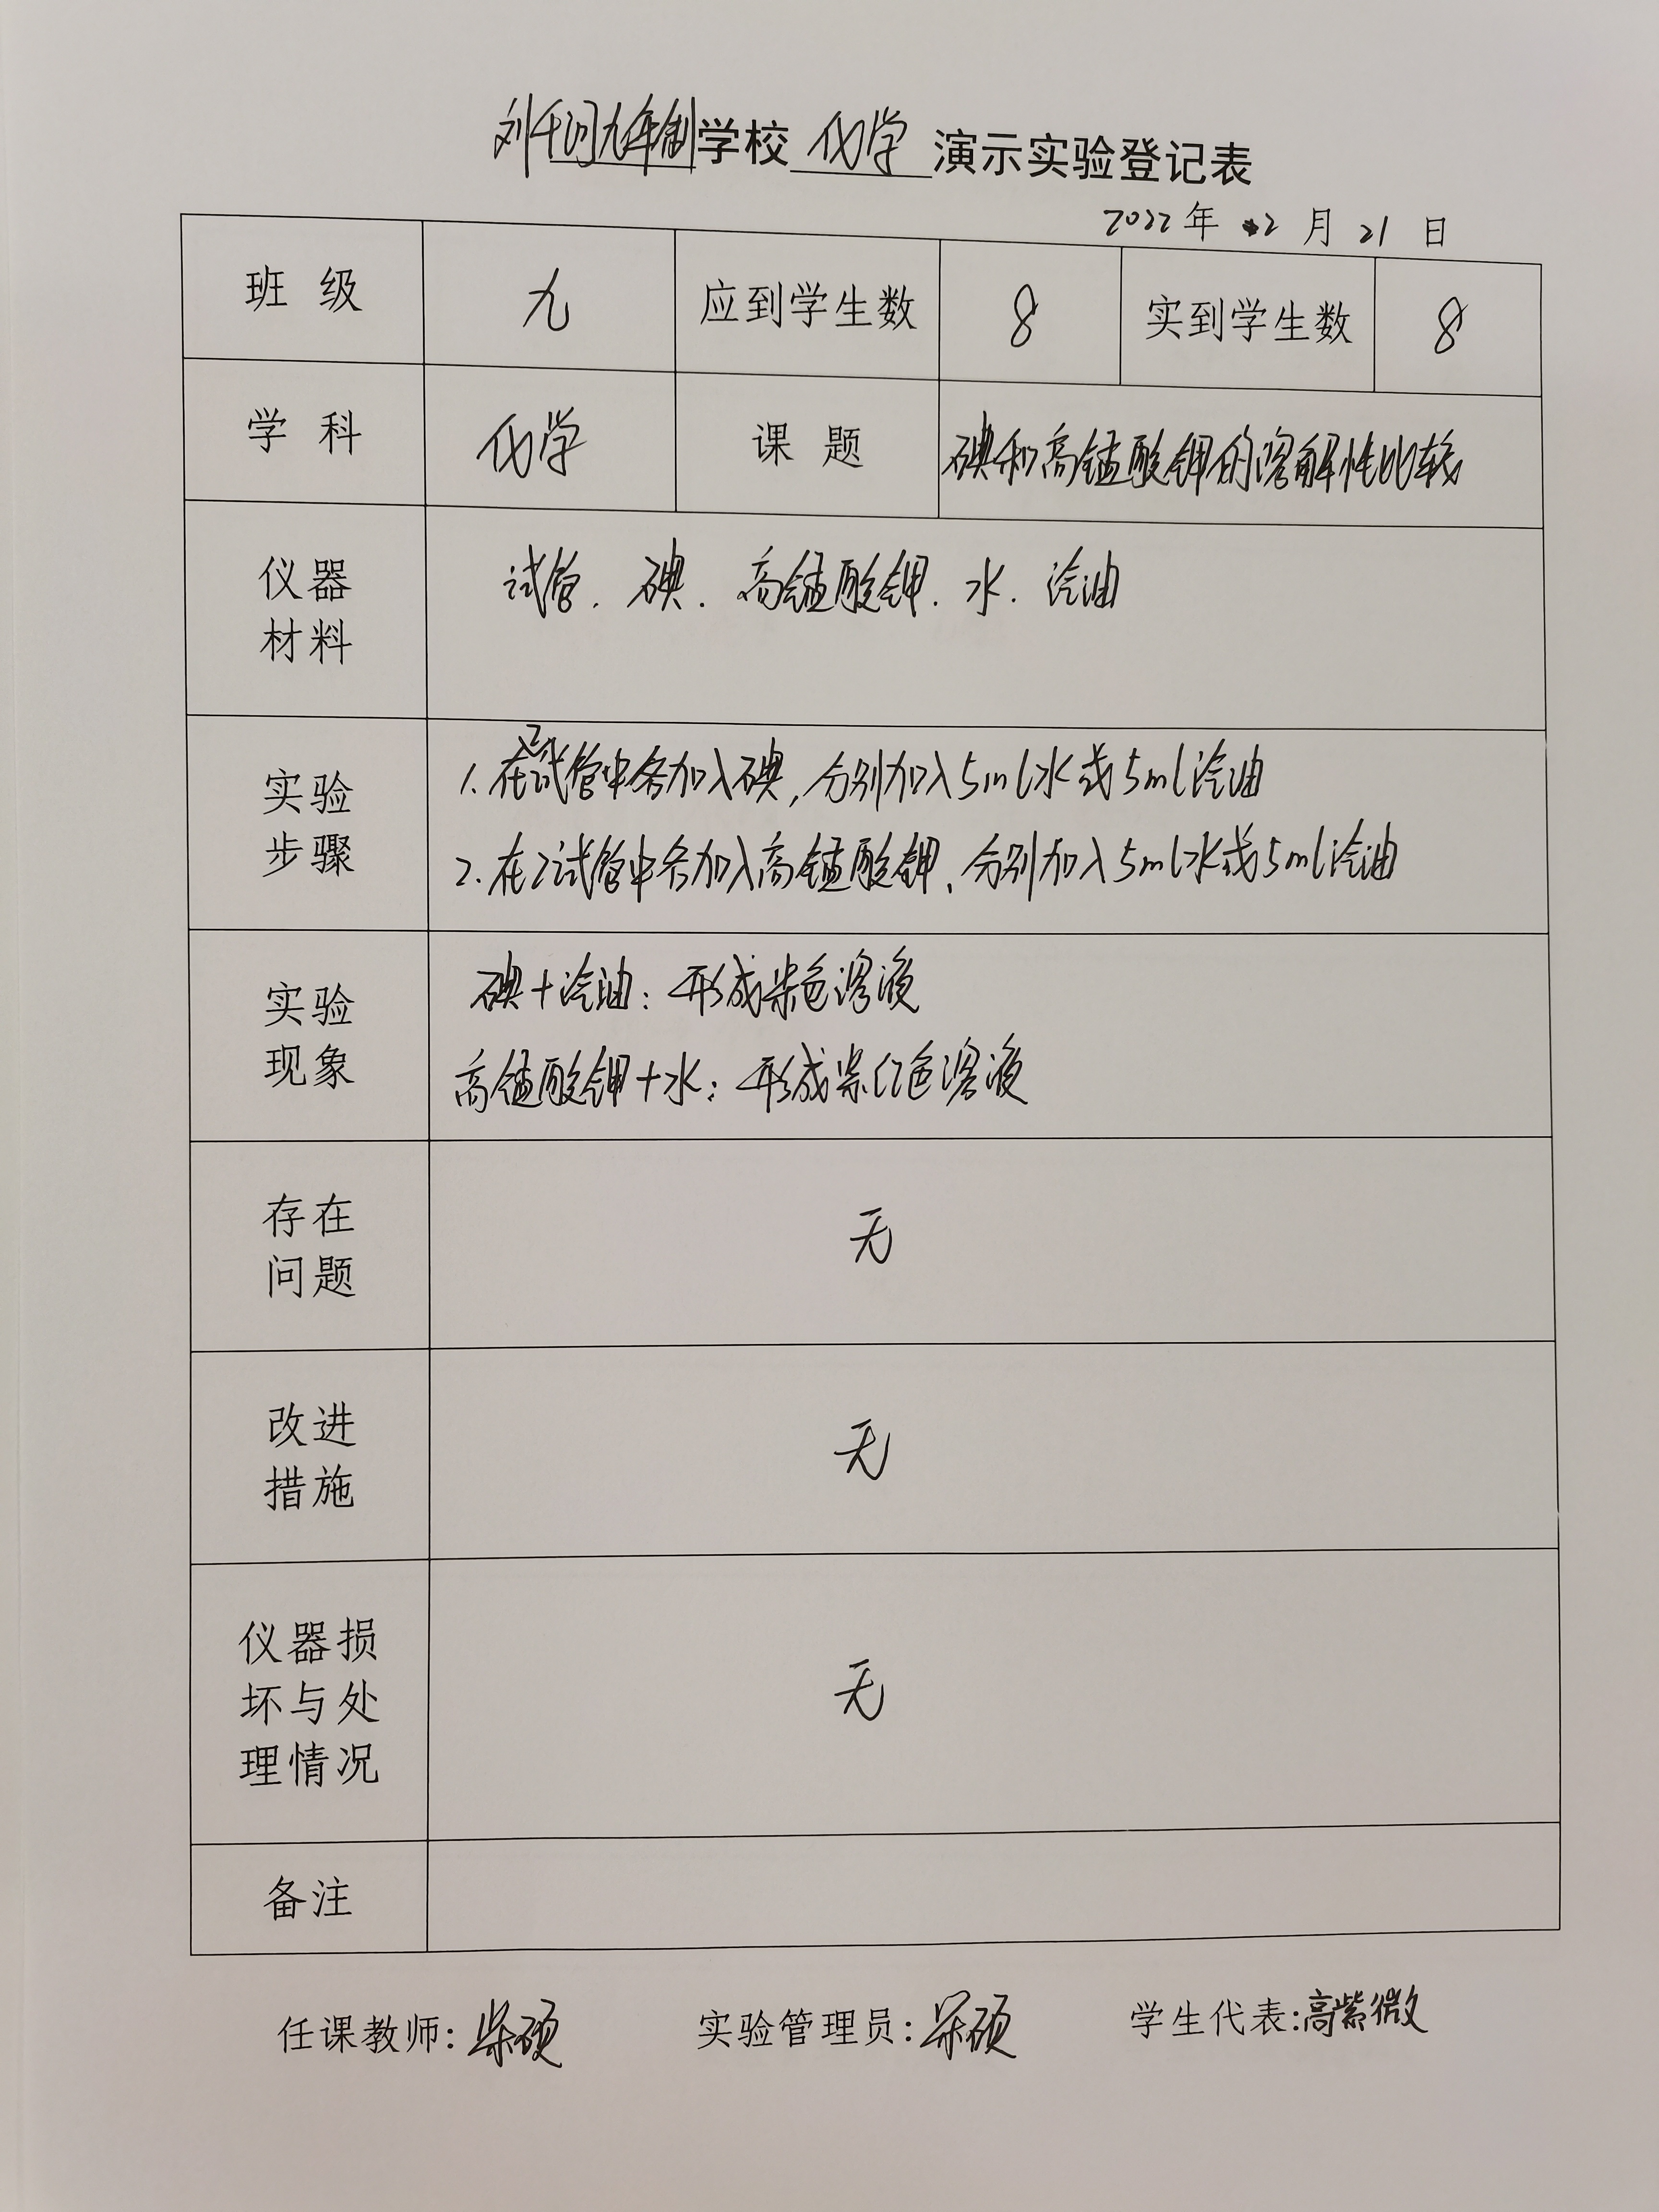 刘千问九年制学校 化学 演示实验登记表
2022年 2月 21 日
班级 九 应到学生数 8 实到学生数 8
学科 化学 课题 碘和高锰酸钾的溶解性比较
仪器
材料
试管. 碘. 高锰酸钾. 水. 汽油
实验
步骤
1. 在2试管中各加入碘,分别加入5ml水或5ml汽油
2. 在2试管中各加入高锰酸钾,分别加入5ml水或5ml汽油
实验
现象
碘+汽油:形成紫色溶液
高锰酸钾+水:形成紫红色溶液
存在
问题
无
改进
措施
无
仪器损
坏与处
理情况
无
备注
任课教师: 实验管理员: 学生代表:高紫微